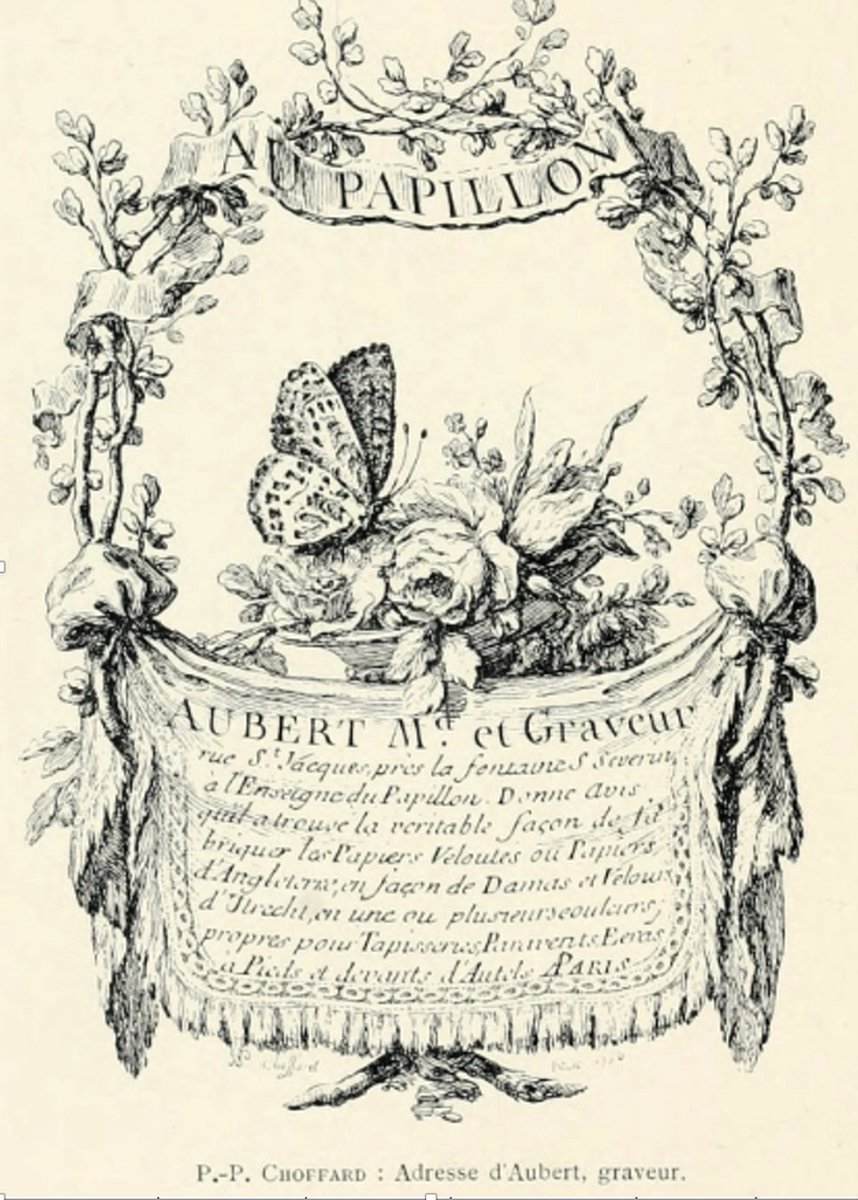 AU PAPILLON
AUBERT Md. et Graveur
rue St. Jacques, près la fontaine S Severin,
à l'Enseigne du Papillon. Donne Avis
quil a trouvé la veritable façon de fa-
briquer les Papiers Veloutés ou Papiers
d'Angleterre, en façon de Damas et Velours
d'Utrecht, en une ou plusieurs couleurs,
propres pour Tapisseries, Paravents, Ecrans
à Pieds et devants d'Autels. A PARIS
Choffard
P.-P. CHOFFARD : Adresse d'Aubert, graveur.